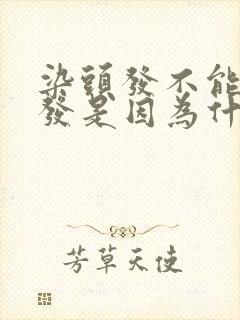 染頭發不能
發是因為什
芳草天使